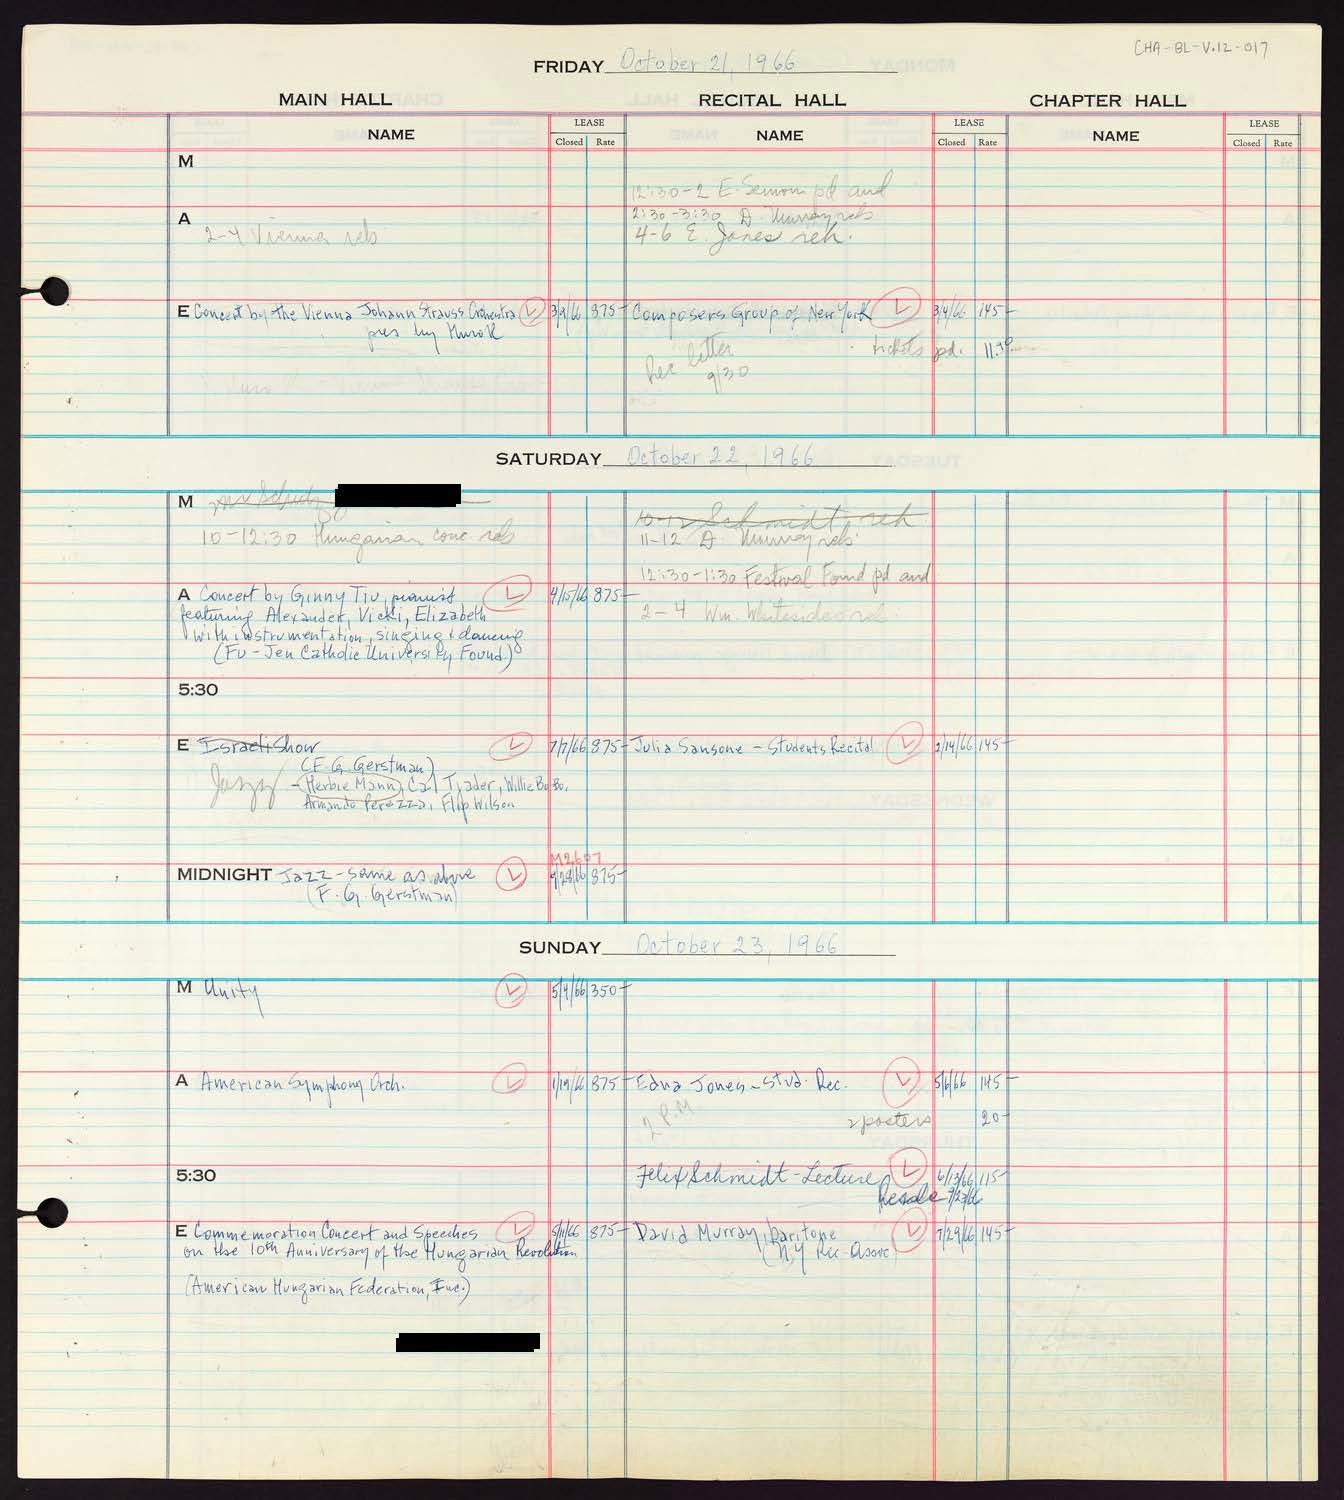 CHA-BL-V.12-017
FRIDAY October 21, 1966
MAIN HALL RECITAL HALL CHAPTER HALL
NAME LEASE Closed Rate NAME LEASE Closed Rate NAME LEASE Closed Rate
M
12:30-2 E. Simon pd and
A
2:30-3:30 D. Murray reh
2-4 Vienna reh
4-6 E. Jones reh.
E Concert by the Vienna Johann Strauss Orchestra 3/9/66 875-
pres by Hurok
Composers Group of New York 3/4/66 145-
tickets pd. 11.
Rec letter
9/30
SATURDAY October 22, 1966
M
10-12:30 Hungarian conc. reh
10-12 Schmidt reh
11-12 D. Murray reh
12:30-1:30 Festival Found pd and
2-4 Wm. Whitesides reh
A Concert by Ginny Tiu, pianist 4/15/66 875-
featuring Alexander, Vicki, Elizabeth
with instrumentation, singing & dancing
(Fu-Jen Catholic University Found.)
5:30
E Israeli Show 7/7/66 875-
(F. G. Gerstman)
Jazz - Herbie Mann, Cal Tjader, Willie Bobo,
Armando Perezza, Flip Wilson
Julia Sansone - Students Recital 2/14/66 145-
M2607
MIDNIGHT Jazz - same as above 9/28/66 875-
(F. G. Gerstman)
SUNDAY October 23, 1966
M Unity 5/4/66 350-
A American Symphony Orch. 1/19/66 875-
Edna Jones - Stud. Rec. 5/6/66 145-
2 P.M.
2 posters 20-
5:30
Felix Schmidt - Lecture 6/13/66 115-
Resale 9/23/66
E Commemoration Concert and Speeches 5/11/66 875-
on the 10th Anniversary of the Hungarian Revolution
(American Hungarian Federation, Inc.)
David Murray, baritone 7/29/66 145-
(N.Y Rec. Assoc.